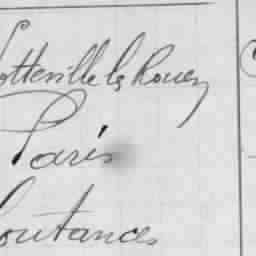 Sotteville lès Rouen
Paris
Coutances